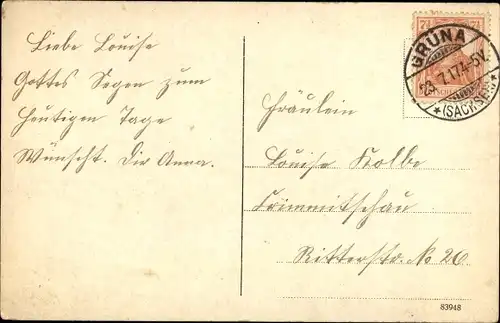 Liebe Louise
Gottes Segen zum
heutigen Tage
Wünscht. Dir Anna.
7½
GRÜNA
23.7.17.4-5V.
* (SACHSEN) *
Fräulein
Louise Kolbe
Crimmitschau
Ritterstr. No 26
83948